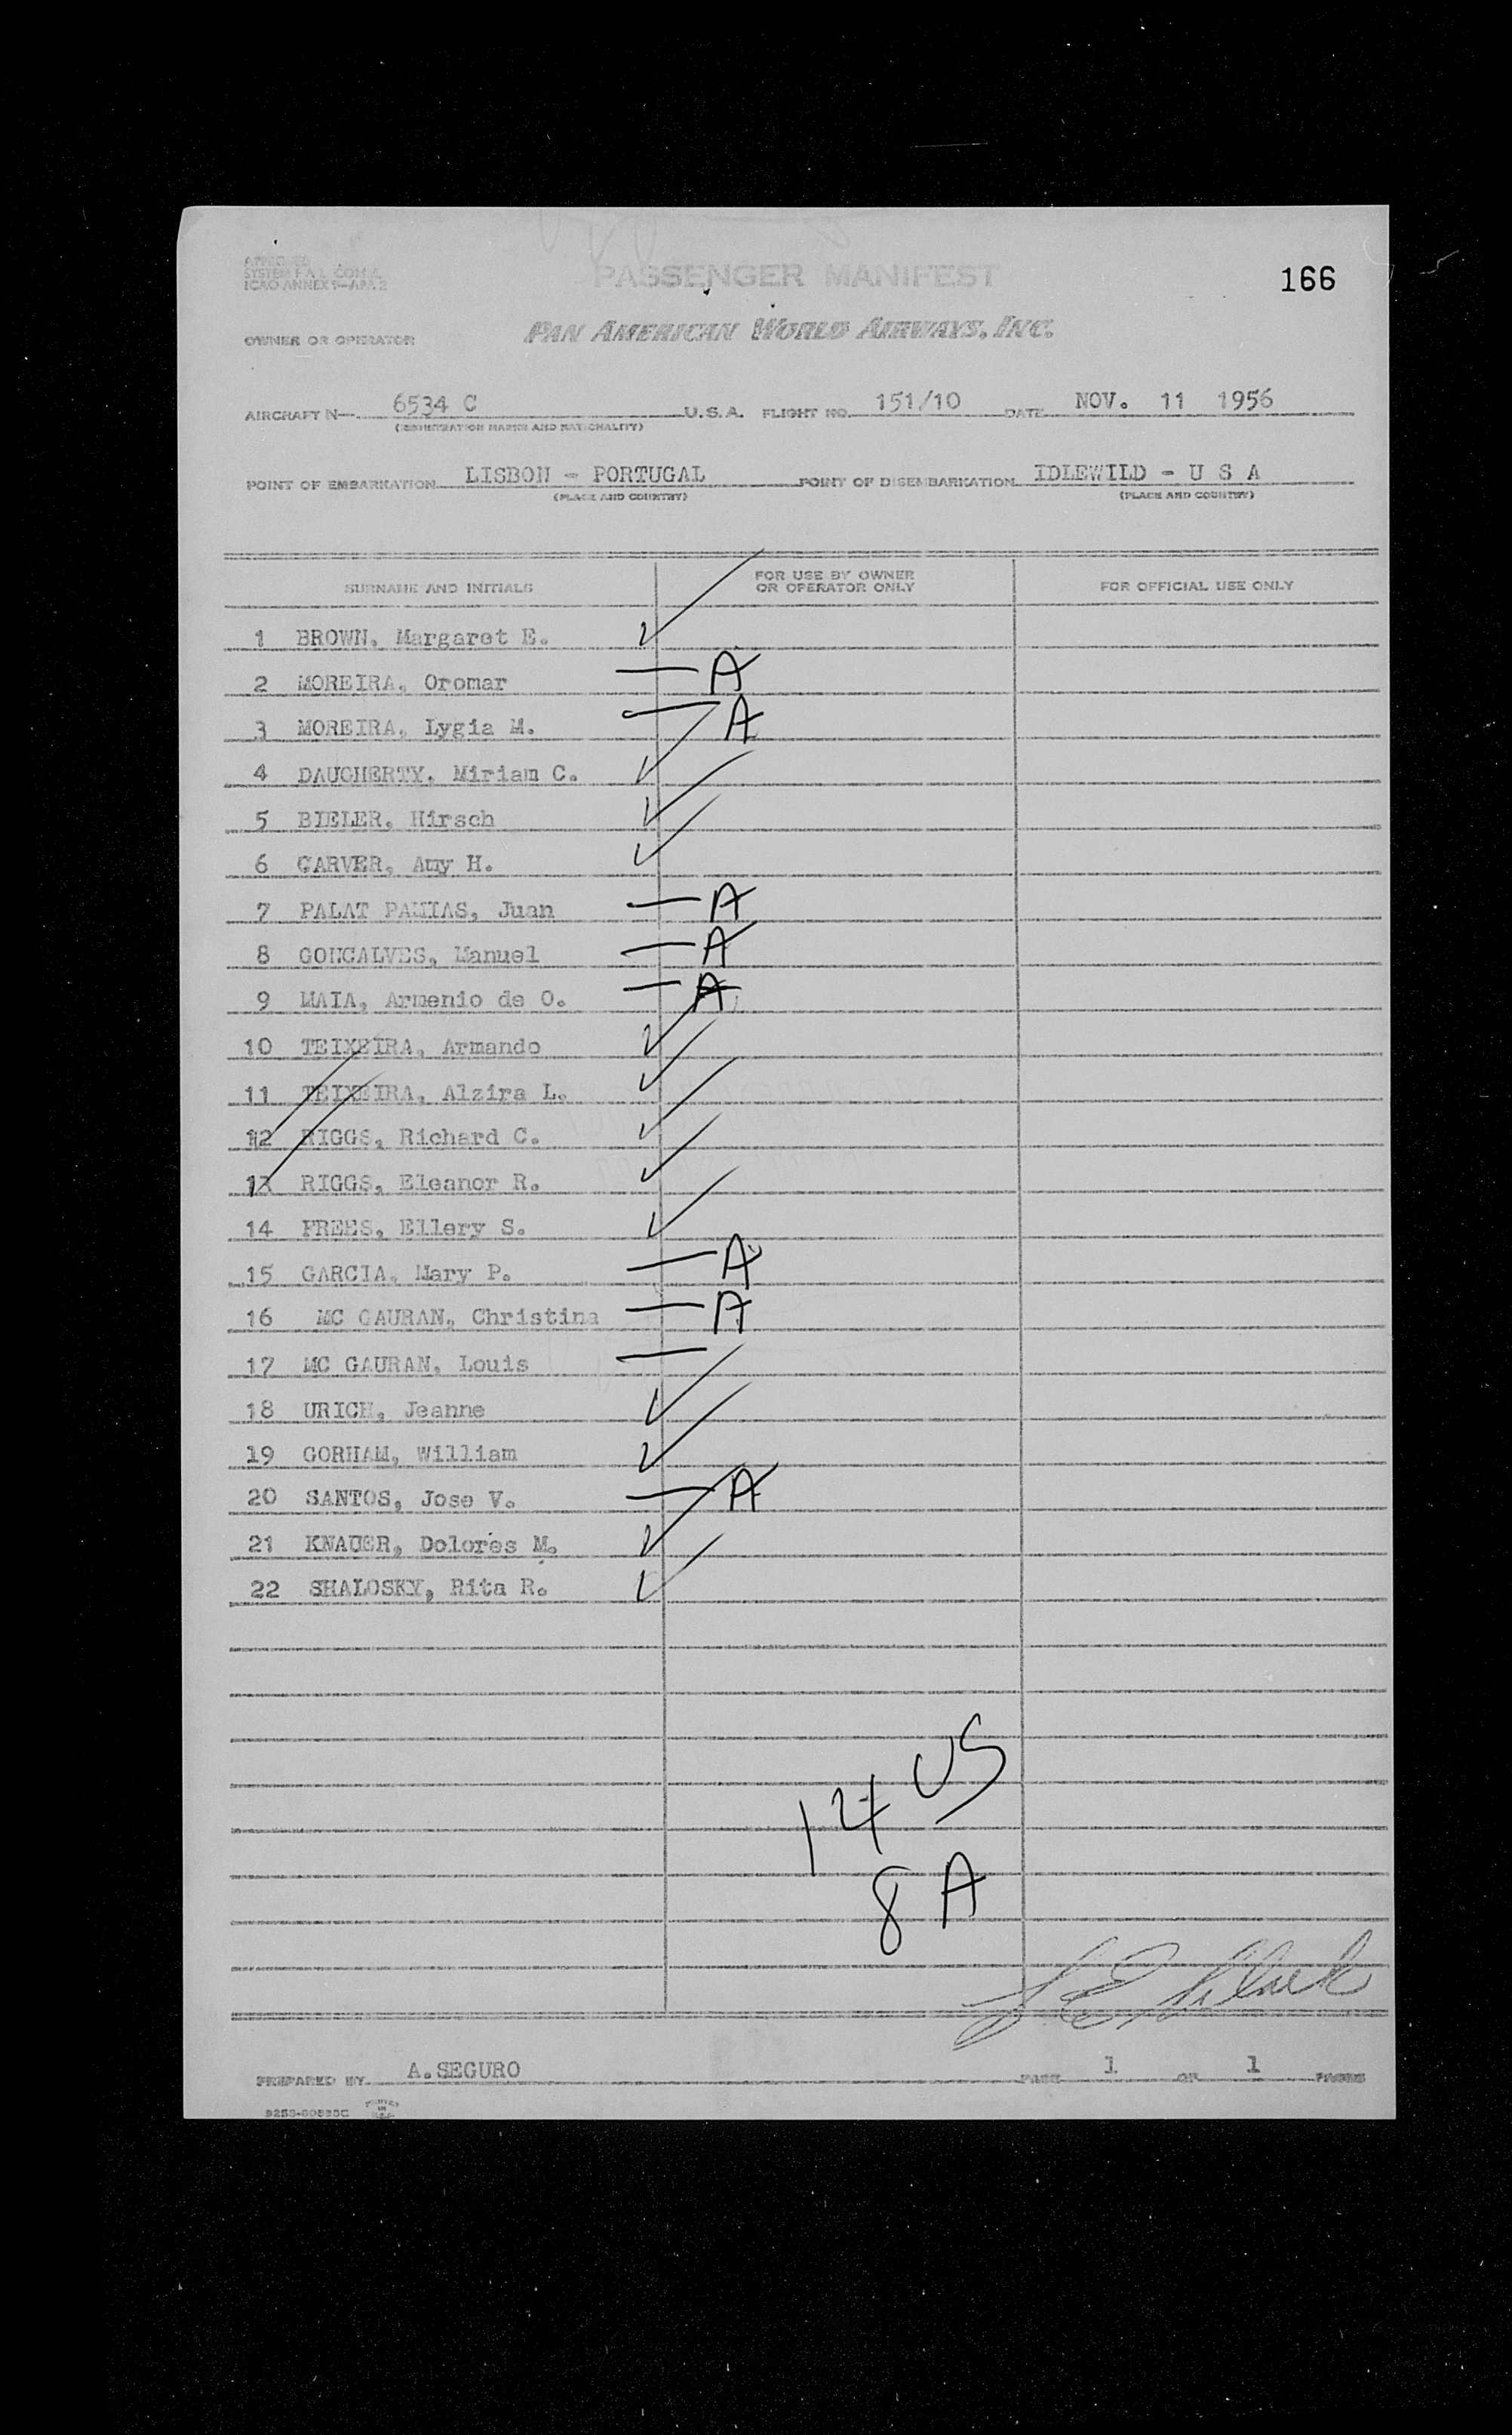 APPROVED
SYSTEM F A L COM'L
ICAO ANNEX 9—APP. 2
PASSENGER MANIFEST
166
OWNER OR OPERATOR PAN AMERICAN WORLD AIRWAYS, INC.
AIRCRAFT N— 6534 C U.S.A. FLIGHT NO. 151/10 DATE NOV. 11 1956
(REGISTRATION MARKS AND NATIONALITY)
POINT OF EMBARKATION LISBON - PORTUGAL POINT OF DISEMBARKATION IDLEWILD - U S A
(PLACE AND COUNTRY) (PLACE AND COUNTRY)
SURNAME AND INITIALS FOR USE BY OWNER OR OPERATOR ONLY FOR OFFICIAL USE ONLY
1 BROWN, Margaret E. ✓
2 MOREIRA, Oromar — A
3 MOREIRA, Lygia M. — A
4 DAUGHERTY, Miriam C. ✓
5 BIELER, Hirsch ✓
6 GARVER, Amy H. ✓
7 PALAT PAMIAS, Juan — A
8 GONCALVES, Manuel — A
9 MAIA, Armenio de O. — A
10 TEIXEIRA, Armando ✓
11 TEIXEIRA, Alzira L. ✓
12 RIGGS, Richard C. ✓
13 RIGGS, Eleanor R. ✓
14 FREES, Ellery S. ✓
15 GARCIA, Mary P. — A
16 MC GAURAN, Christina — A
17 MC GAURAN, Louis —
18 URICH, Jeanne ✓
19 GORHAM, William ✓
20 SANTOS, Jose V. — A
21 KNAUER, Dolores M. ✓
22 SHALOSKY, Rita R. ✓
14 US
8 A
PREPARED BY A. SEGURO PAGE 1 OF 1 PAGES
PRINTED IN U.S.A.